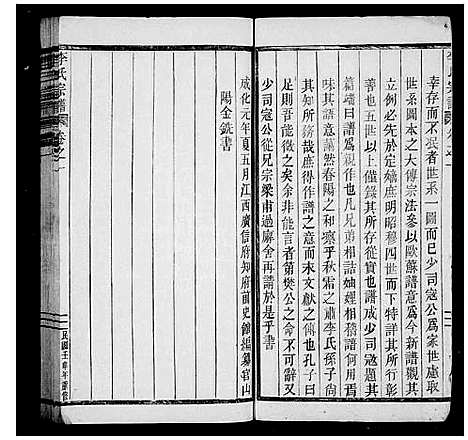 幸存而不泯者世系一圖而已少司寇公爲家世虛取
世系圖本之大傳宗法參以歐蘇譜意爲今新譜觀其
立例必先於定嫡庶明昭穆四世而下特詳其所行彰
善也五世以上僅錄其所存從實也譜成少司寇公以
篇端曰譜爲親作也凡兄弟相詬妯娌相稽譜何用焉
味其語意藹然春陽之和凛乎秋霜之肅李氏孫子尚
其知所務哉庶得作譜之意而宋文獻之傳也孔子曰
足則吾能徵之矣余非能言者第樊公之命不可辭又
少司寇公從兄宗梁甫過廨舍再請於是乎書
成化元年夏五月江西廣信府知府前史館編纂官山
陽金銑書
李氏宗譜
卷之一
李氏宗譜